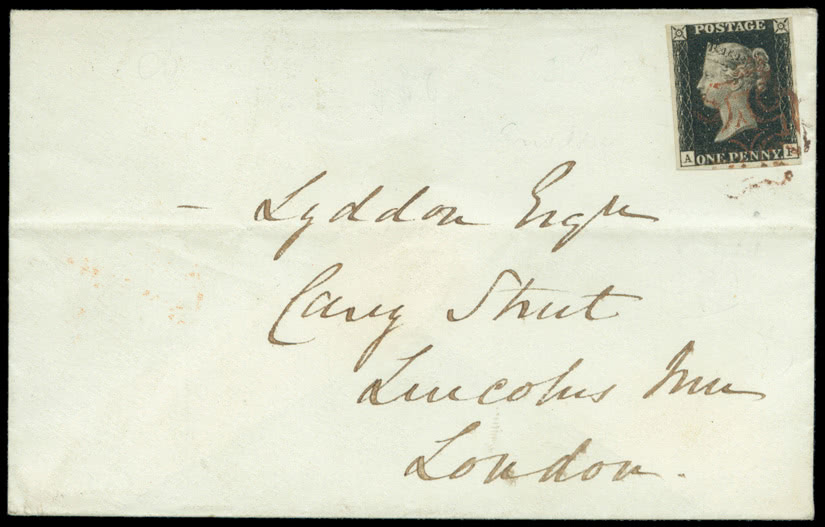 POSTAGE
A ONE PENNY
– Lyddon Esqre
Carey Street
Lincolns Inn
London.